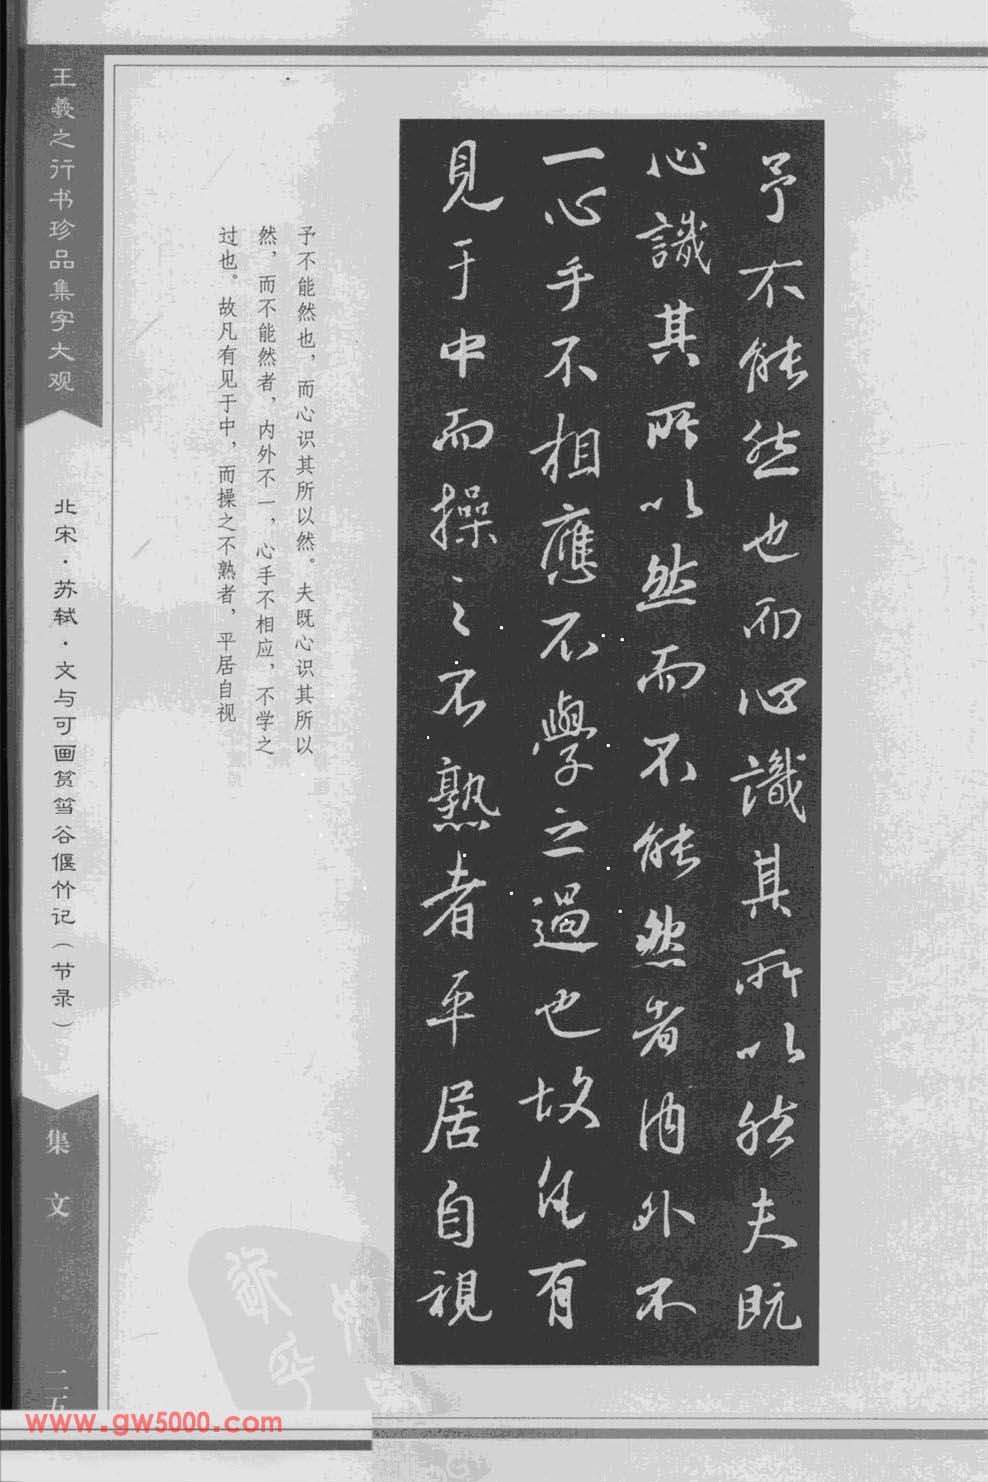 予不能然也而心識其所以然夫既
心識其所以然而不能然者内外不
一心手不相應不學之過也故凡有
見于中而操之不熟者平居自視
予不能然也，而心识其所以然。夫既心识其所以
然，而不能然者，内外不一，心手不相应，不学之
过也。故凡有见于中，而操之不熟者，平居自视
王羲之行书珍品集字大观
北宋·苏轼·文与可画筼筜谷偃竹记（节录）
集文
二五
www.gw5000.com